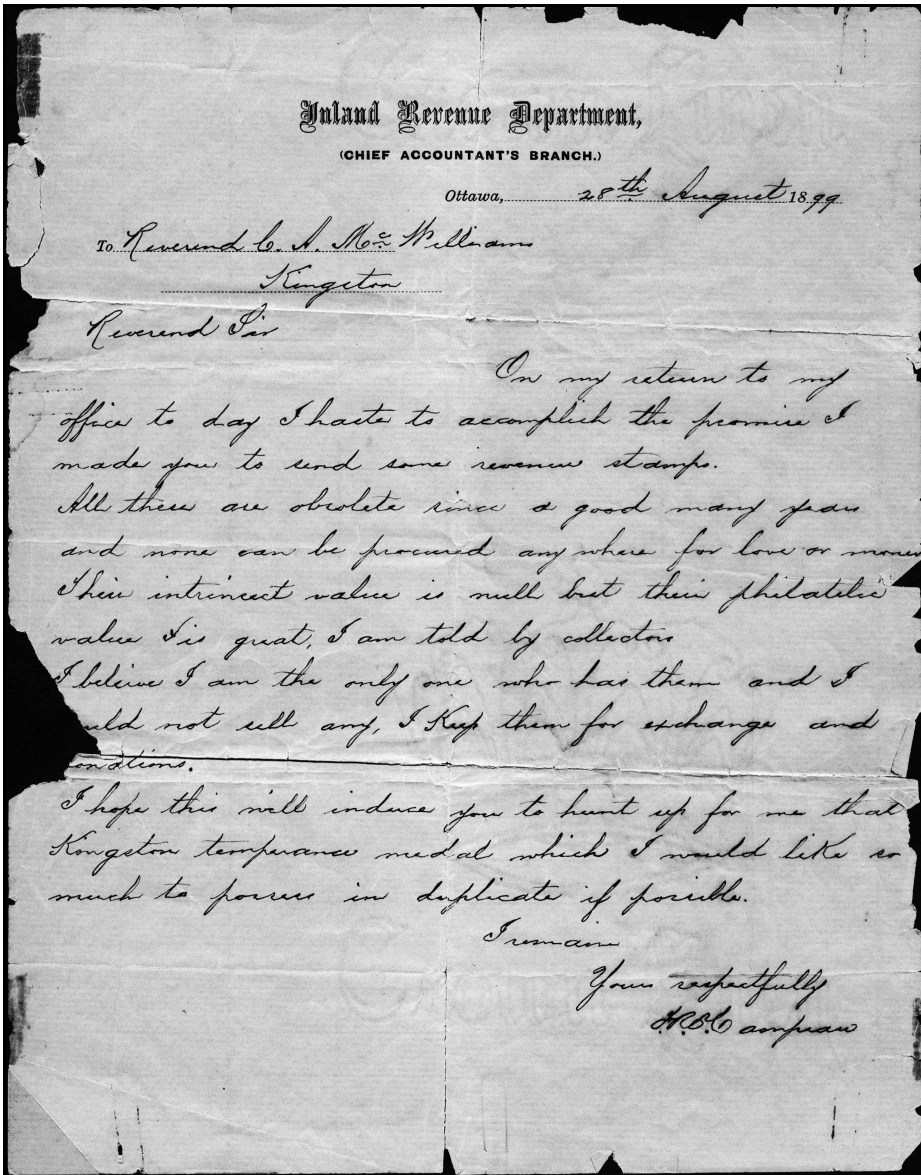 Inland Revenue Department,
(CHIEF ACCOUNTANT'S BRANCH.)
Ottawa, 28th August 1899
To Reverend C. A. Mc Williams
Kingston
Reverend Sir
On my return to my
office to day I haste to accomplish the promise I
made you to send some revenue stamps.
All these are obsolete since a good many years
and none can be procured any where for love or money
Their intrinsect value is null but their philatelic
value is great, I am told by collectors
I beleive I am the only one who has them and I
uld not sell any, I Keep them for exchange and
onations.
I hope this will induce you to hunt up for me that
Kongston temperance medal which I would like so
much to possess in duplicate if possible.
I remain
Yours respectfully
F.R.E. Campeau